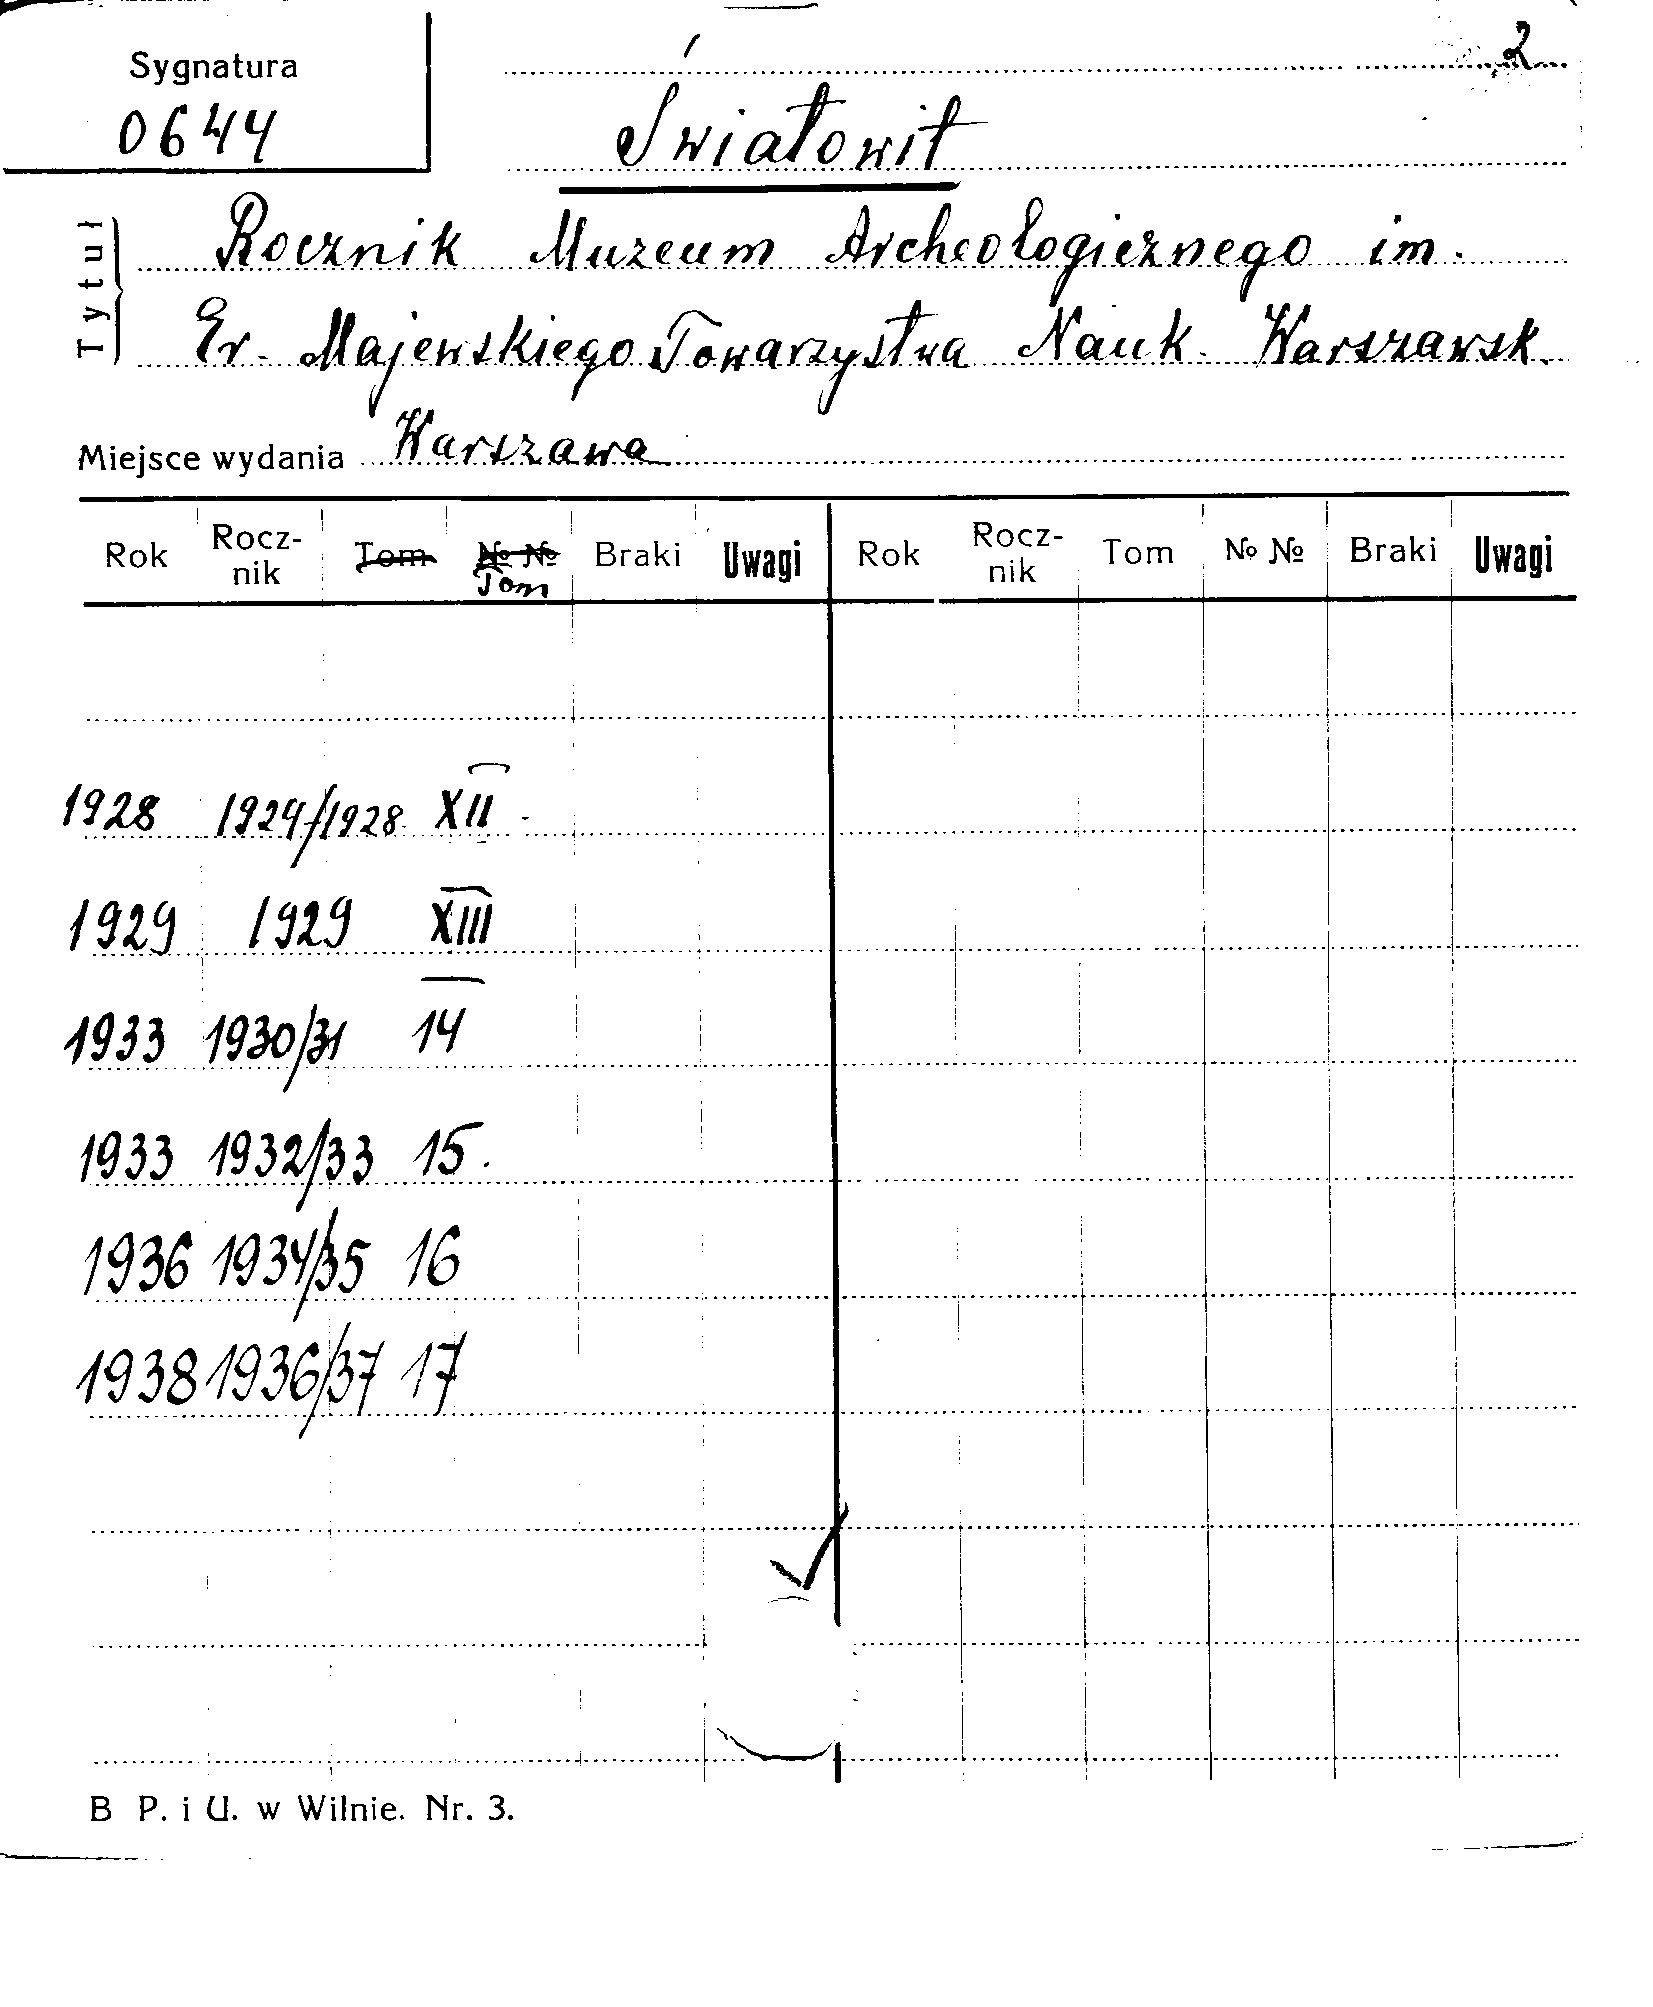 Sygnatura
0644
2
Światowit
Tytuł
Rocznik Muzeum Archeologicznego im.
Er. Majewskiego Towarzystwa Nauk. Warszawsk.
Miejsce wydania Warszawa
Rok Rocz-nik Tom №№ Tom Braki Uwagi Rok Rocz-nik Tom №№ Braki Uwagi
1928 1924/1928 XII
1929 1929 XIII
1933 1930/31 14
1933 1932/33 15.
1936 1934/35 16
1938 1936/37 17
B P. i U. w Wilnie. Nr. 3.